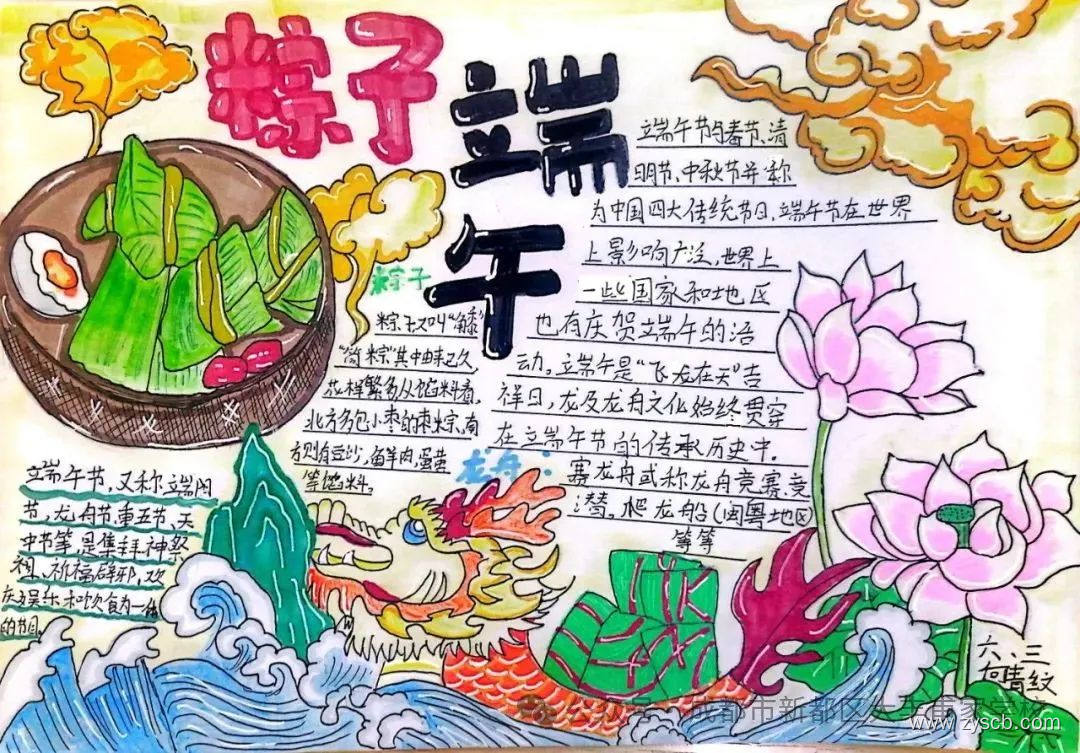 粽子
端
午
端午节与春节、清
明节、中秋节并称
为中国四大传统节日,端午节在世界
上影响广泛,世界上
一些国家和地区
也有庆贺端午的活
动。端午是“飞龙在天”吉
祥日,龙及龙舟文化始终贯穿
在端午节的传承历史中。
赛龙舟或称龙舟竞赛、竞
潜。爬龙船(闽粤地区)
等等
粽子
粽子又叫“角黍”
“筒粽”其中由来已久
花样繁多从馅料看,
北方多包小枣的枣粽,南
方则有豆沙,鲜肉,蛋黄
等馅料。
龙舟:
端午节,又称端阳
节,龙舟节重五节、天
中节等,是集拜神祭
祖、祈福辟邪,欢
庆娱乐和饮食为一体
的节日。
六、三
成都市新都区
www.zyscb.com